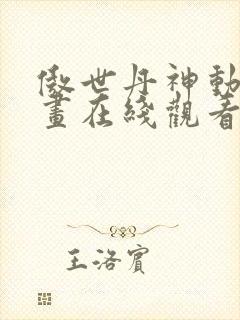 傲世丹神動
畫在綫觀看
王洛賓